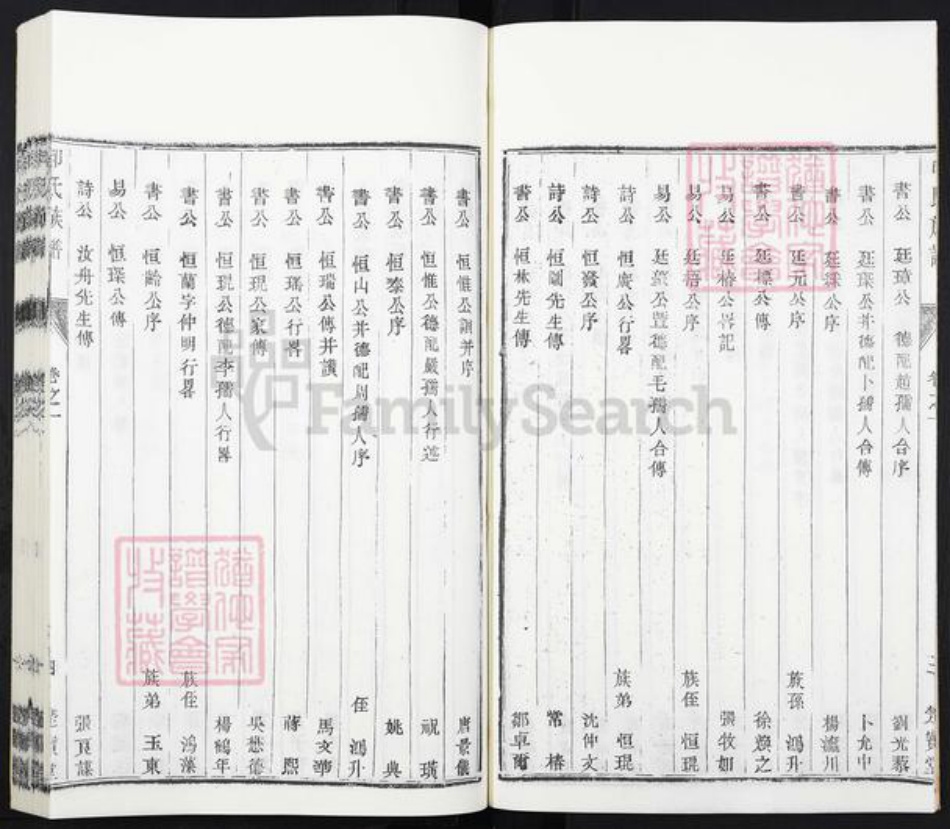 書公 廷璋公 德配趙孺人合序 劉光藜
書公 廷琛公并德配卜孺人合傳 卜允中
書公 廷霖公序 楊瀛川
書公 廷元公序 族孫 鴻升
書公 廷標公傳 徐煥之
易公 廷椿公畧記 張牧如
易公 廷梧公序 族侄 恒琨
易公 廷公暨德配毛孺人合傳
詩公 恒廣公行畧 族弟 恒琨
詩公 恒發公序 沈仲文
詩公 恒開先生傳 常椿
書公 恒林先生傳 鄒卓爾
書公 恒惟公詛并序 唐景儀
書公 恒惟公德配嚴孺人行述 祝璜
書公 恒泰公序 姚典
書公 恒山公并德配周孺人序 侄 鴻升
書公 恒瑞公傳并讚 馬文
書公 恒瑤公行畧 蔣熙
書公 恒琨公家傳 吳懋德
書公 恒琨公德配李孺人行畧 楊鶴年
書公 恒蘭字仲明行畧 族侄 鴻藻
書公 恒齡公序 族弟 玉東
易公 恒琛公傳
詩公 汝舟先生傳 張良謀
氏族譜 卷之一
FamilySearch
譜學會
收藏